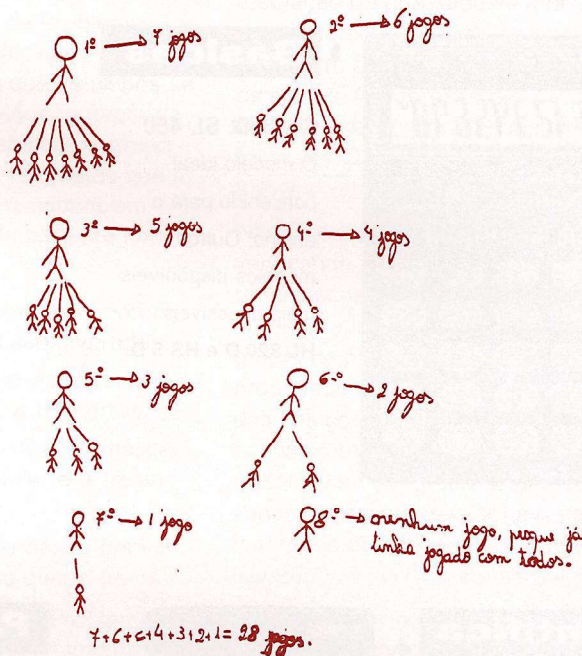 1º → 7 jogos
2º → 6 jogos
3º → 5 jogos
4º → 4 jogos
5º → 3 jogos
6º → 2 jogos
7º → 1 jogo
8º → nenhum jogo, porque já
tinha jogado com todos.
7+6+5+4+3+2+1= 28 jogos.